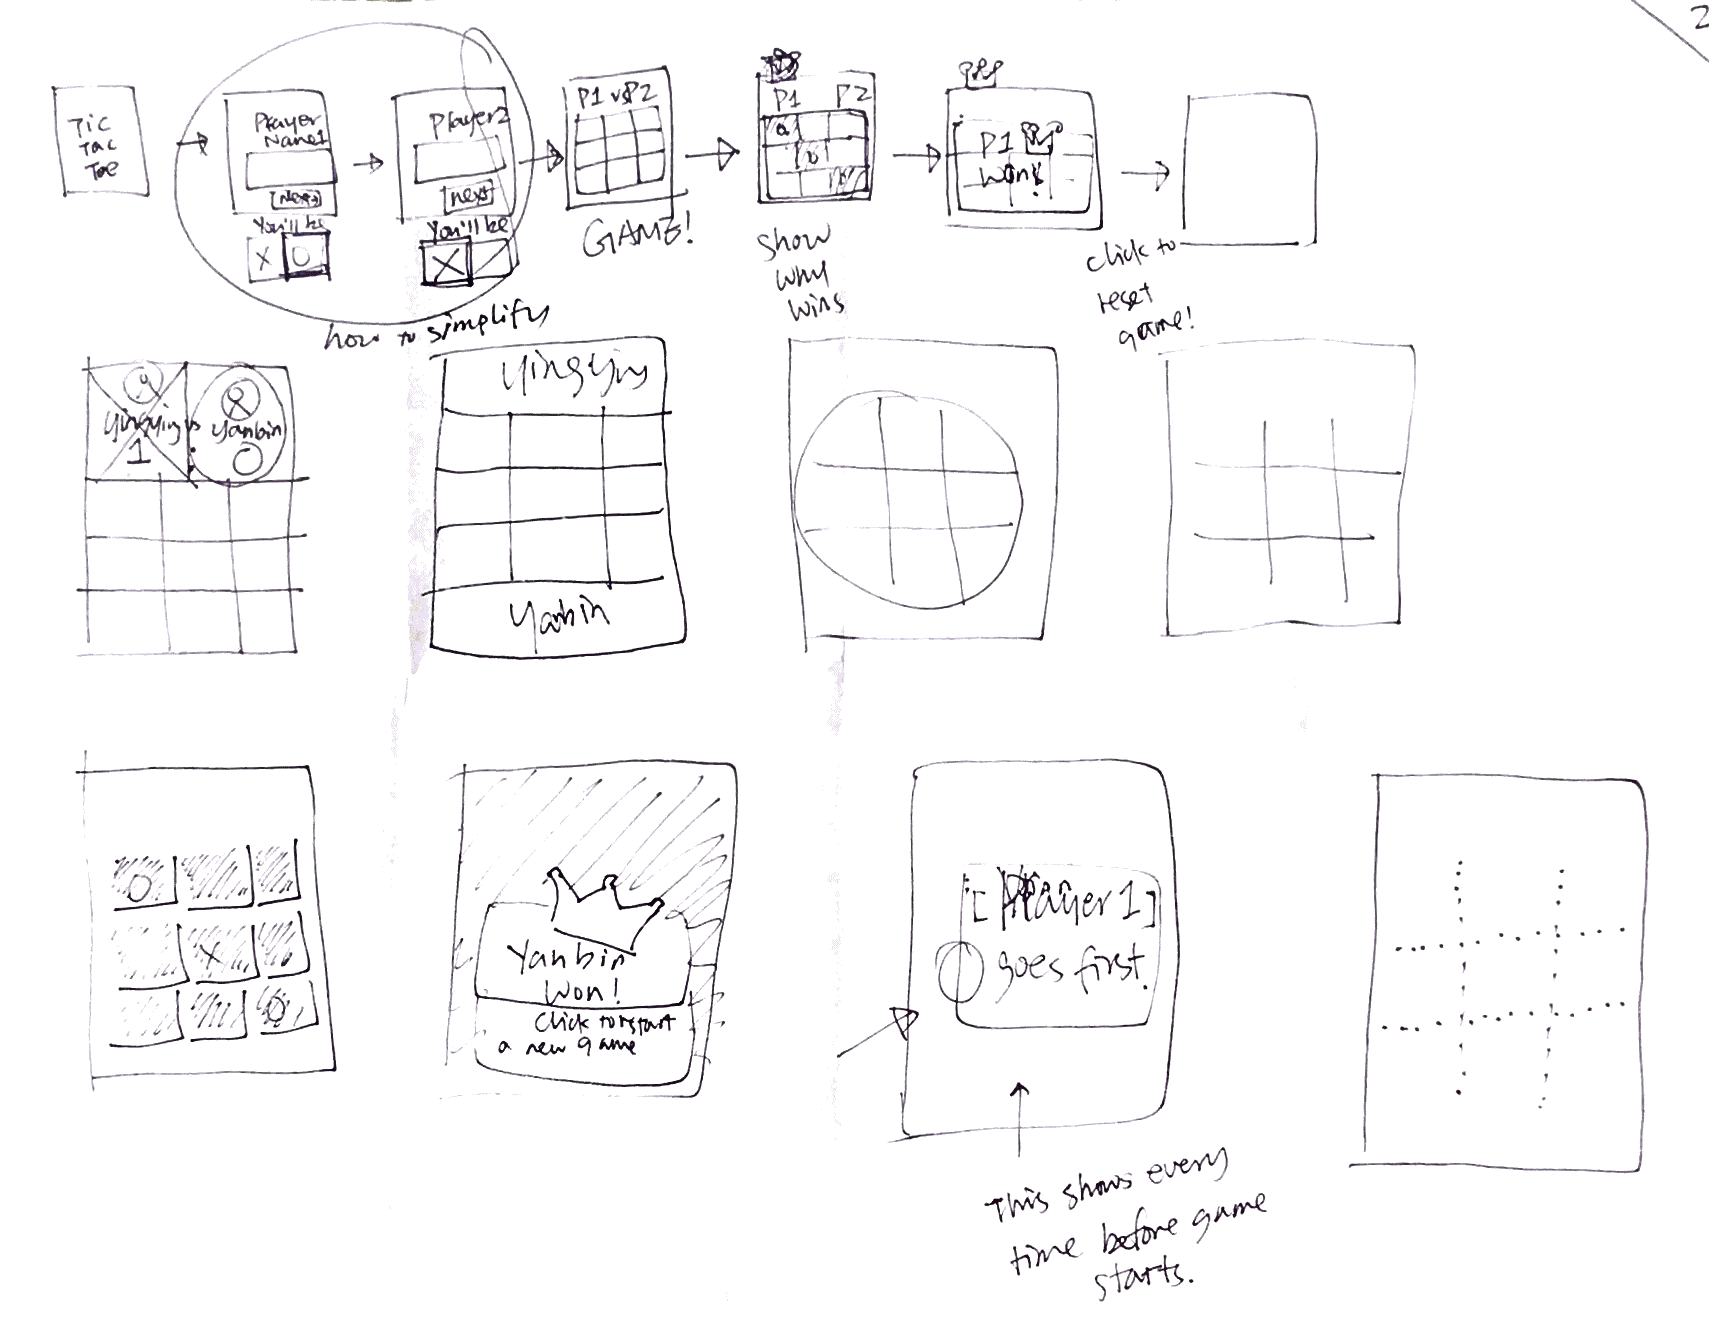 2
Tic
Tac
Toe
Player
Name1
[Next]
You'll be
X O
Player2
[next]
You'll be
X
how to simplify
P1 vs P2
GAME!
P1 P2
show
why
wins
P1
Won!
click to
reset
game!
Yingying vs Yanbin
1
Yingying
Yanbin
O
X
O
Yanbin
Won!
Click to start
a new game
[Player 1]
goes first.
This shows every
time before game
starts.